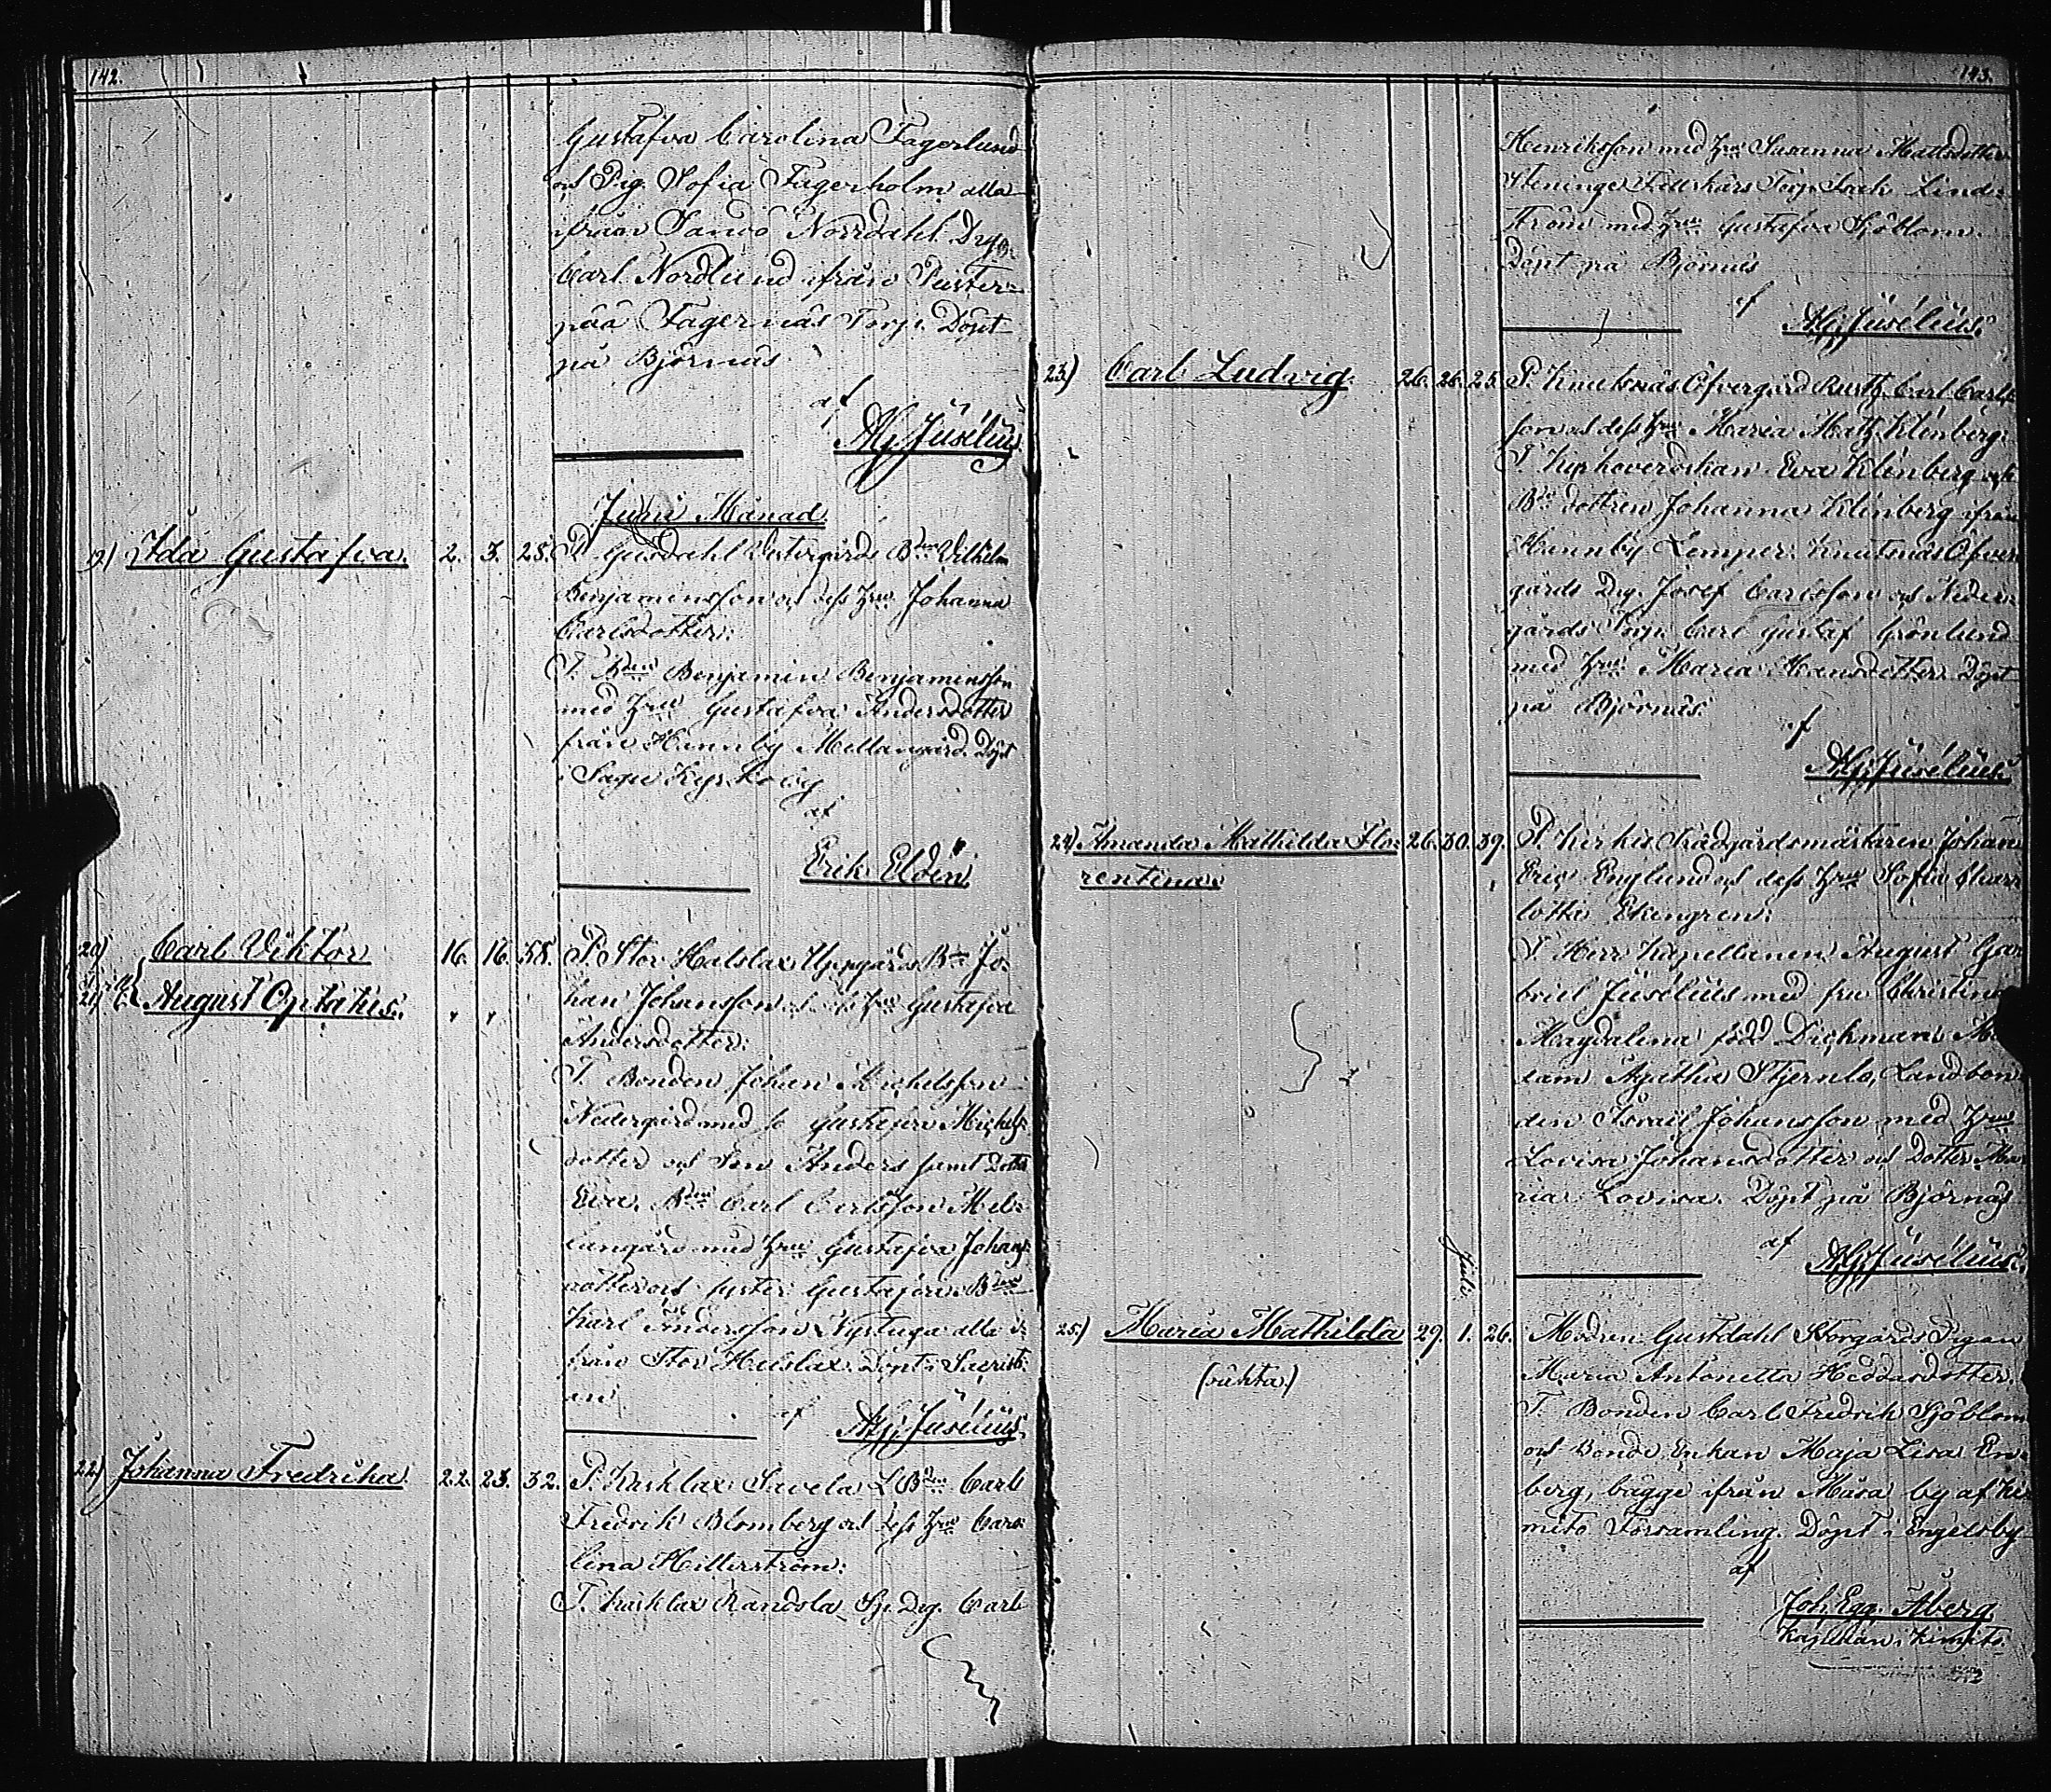 142.
Gustafva Carolina Fagerlund
och Pig. Sofia Fagerholm alla
ifrån Sandö Norrdahl Drg.
Carl Nordlund ifrån Puster=
pää Fagernäs Torp. Döpt
på Björnäs
af
Alg. Jusélius.
Juni Månad
19.) Ida Gustafva. 2. 3. 28. P. Gusdahl Westergårds Bdn Vilhelm
Benjaminsson och dess hru Johanna
Carlsdotter:
T. Bdn Benjamin Benjaminsson
med hru Gustafva Andersdotter
från Hannby Mellangård. Döpt
i Sagu Kyrkoby
af
Erik Eldin
20) Carl Viktor 16. 16. 38. P. Stor Halslax Uppgårds Bdn Jo=
21) August Optatus. " " han Johansson och dess hru Gustafva
Andersdotter:
T. Bonden Johan Michelsson
Nedergård med Gustafva Michels=
dotter och Son Anders samt Dotter
Eva, Bdn Carl Carlsson Mel=
langård med hru Gustafva Johans=
dotter och syster Gustafva. Bdn
Karl Andersson Nystuga alla i=
från Stor Halslax. Döpt i Sacristi=
an
af
Alg. Jusélius.
22.) Johanna Fredrika 22. 23. 32. P. Karklax Savela L.Bdn Carl
Fredrik Blomberg och dess hru Caro=
lina Hillerström:
T. Karklax Randola Sp. Drg. Carl
143.
Henriksson med hru Susanna Mattsdotter
Steninge Fellskärs Torp. Isak Lind=
ström med hru Gustafva Sjöblom.
Döpt på Björnäs
af
Alg. Jusélius.
23.) Carl Ludvig. 26. 26. 25. P. Knutsnäs Öfvergård Rusth. Carl Carls=
son och dess hru Maria Math. Klinberg:
T. Kyrkoverdskan Eva Klinberg och
Bdn dottren Johanna Klinberg ifrån
Hannby Lemper. Knutsnäs Öfver
gårds Drg. Josef Carlsson och Neder=
gårds Torp. Carl Gustaf Grönlund
med hru Maria Hansdotter. Döpt
på Björnäs.
af
Alg. Jusélius.
24) Amanda Mathilda Flo= 26. 30. 39. P. Kirkis Trädgårdsmästaren Johan
rentina. Eric Englund och dess hru Sofia Char
lotta Ekengren:
T. Herr Kapellanen August Ga
briel Jusélius med fru Christina
Magdalena född Dickman, Ma
dam Agatha Stjernlo, Landbon=
den Israël Johansson med hru
Lovisa Johansdotter och Dotter Ma
ria Lovisa. Döpt på Björnäs
af
Alg. Jusélius.
Juli
25.) Maria Mathilda 29. 1. 26. Modren Gustdahl Storgårds Pigan
(oäkta) Maria Antonetta Heddasdotter.
T. Bonden Carl Fredrik Sjöblom
och Bonde Enkan Maja Lisa En=
berg, bägge ifrån Måsa by af Ki
mito Församling. Döpt i Engelsby
af
Joh. Egg. Åberg
Kaplan i Kimito.